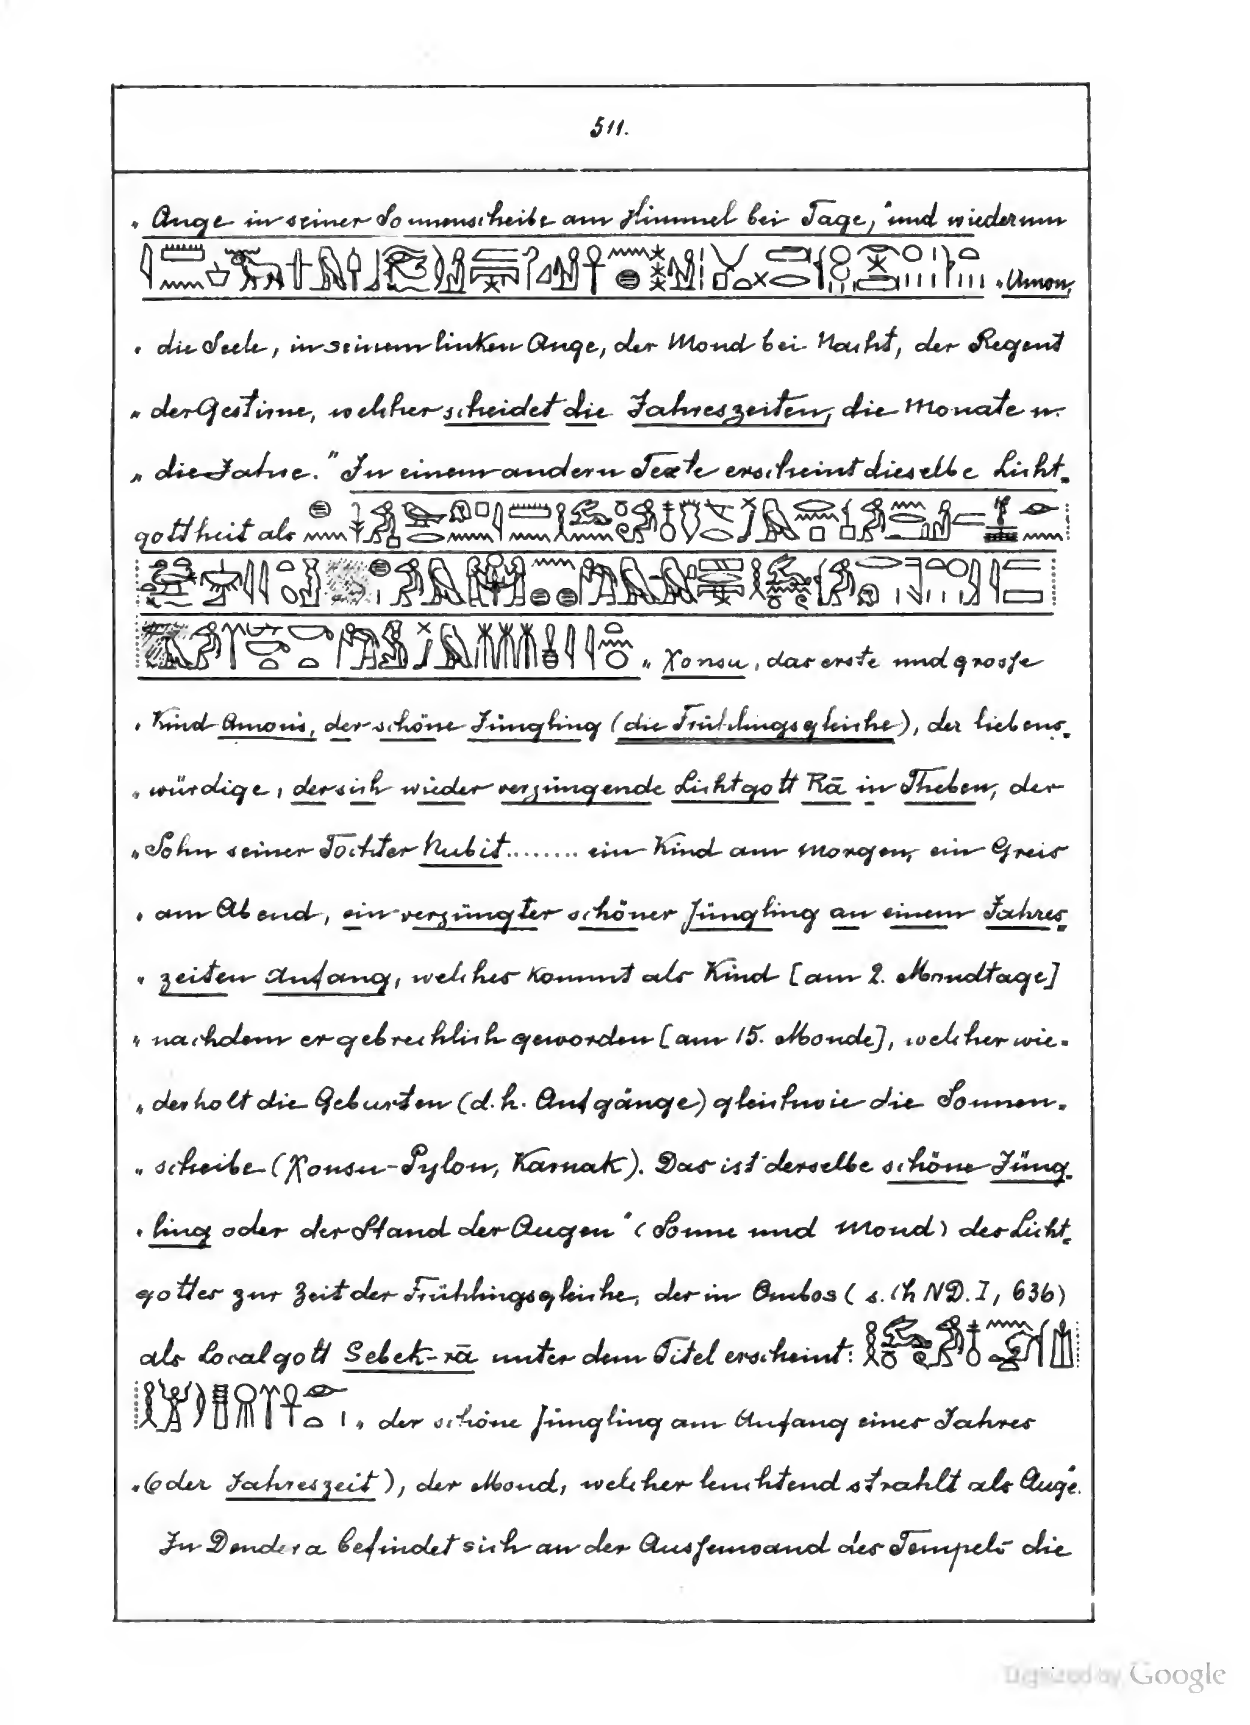 511.
„ Auge in seiner Sonnenscheibe am Himmel bei Tage," und wiederum
„ Amon,
„ die Seele, in seinem linken Auge, der Mond bei Nacht, der Regent
„ der Gestirne, welcher scheidet die Jahreszeiten, die Monate u.
„ die Jahre." In einem andern Texte erscheint dieselbe Licht-
gottheit als
„ Χonsu, das erste und grosse
„ Kind Amon's, der schöne Jüngling (die Frühlingsgleiche), der liebens-
„ würdige, der sich wieder verjüngende Lichtgott Rā in Theben, der
„ Sohn seiner Tochter Nubit........ ein Kind am Morgen, ein Greis
„ am Abend, ein verjüngter schöner Jüngling an einem Jahres-
„ zeiten Anfang, welches kommt als Kind [am 2. Mondtage]
„ nachdem er gebrechlich geworden [am 15. Monde], welcher wie-
„ derholt die Geburten (d.h. Aufgänge) gleichwie die Sonnen-
„ scheibe (Χonsu-Pylon, Karnak). Das ist derselbe schöne Jüng-
„ ling oder der Stand der Augen" (Sonne und Mond) des Licht-
gottes zur Zeit der Frühlingsgleiche, der in Ombos (s. Ch ND. I, 636)
als Localgott Sebek-rā unter dem Titel erscheint:
„ der schöne Jüngling am Anfang eines Jahres
„ (oder Jahreszeit), der Mond, welcher leuchtend strahlt als Auge."
In Dendera befindet sich an der Aussenwand des Tempels die
Digitized by Google